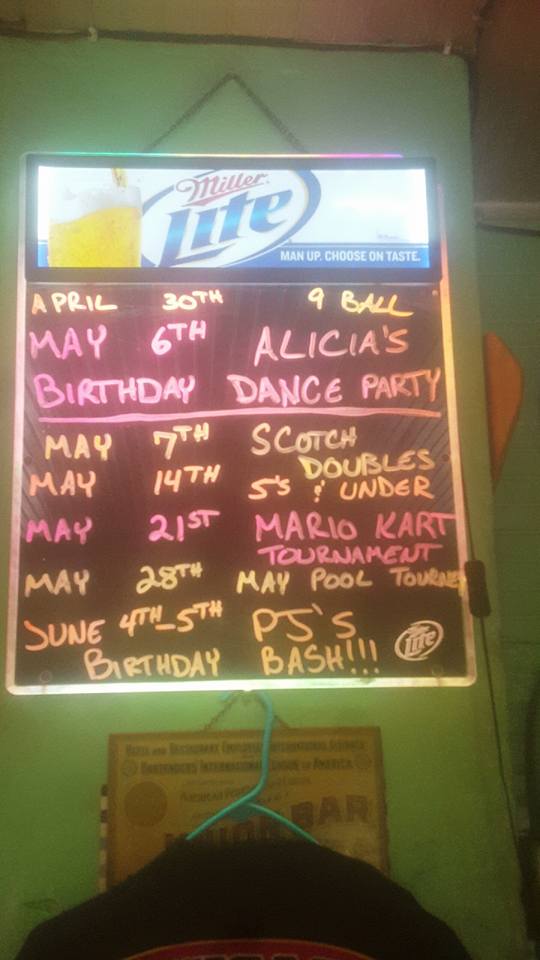 Miller
Lite
MAN UP. CHOOSE ON TASTE.
APRIL 30TH 9 BALL
MAY 6TH ALICIA'S
BIRTHDAY DANCE PARTY
MAY 7TH SCOTCH
DOUBLES
MAY 14TH 5'S & UNDER
MAY 21ST MARIO KART
TOURNAMENT
MAY 28TH MAY POOL TOURNEY
JUNE 4TH-5TH PJ'S
BIRTHDAY BASH!!!
Lite
HOTEL AND RESTAURANT EMPLOYEES INTERNATIONAL ALLIANCE
BARTENDERS INTERNATIONAL LEAGUE OF AMERICA
UNION BAR